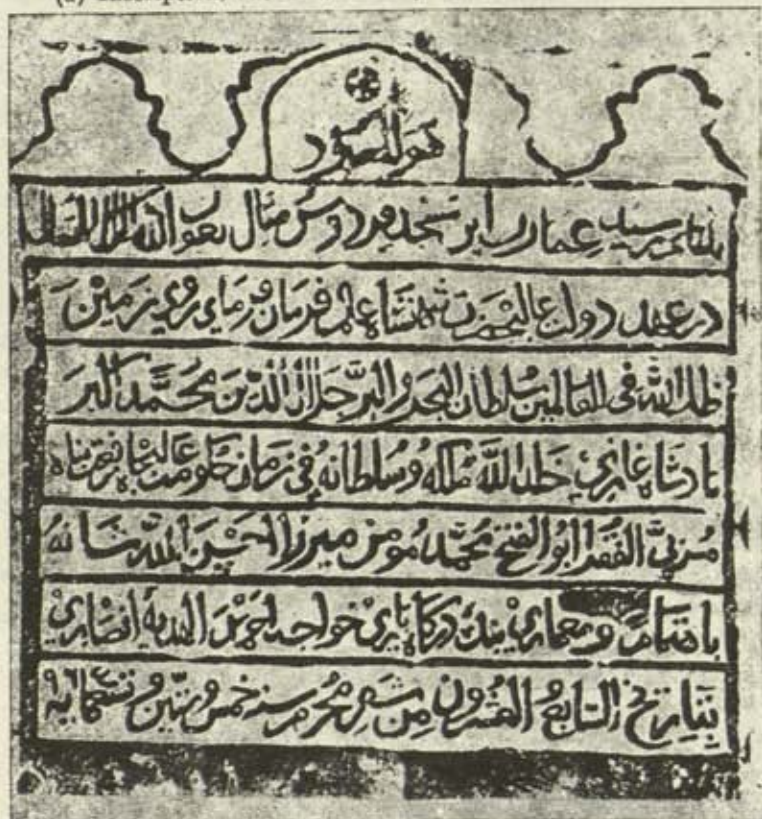 هو المعبود
باتمام رسید عمارت این مسجد فردوس مثال بعون الله الملک المتعال
در عهد دولت عالیحضرت شهنشاه عالم فرمان فرمای روی زمین
ظل الله فی العالمین سلطان البحر والبر جلال الدین محمد اکبر
بادشاه غازی خلد الله ملکه وسلطانه فی زمان حکومت عالیجاه
مربی الفقرا ابو الفتح محمد مومن میرزا
باهتمام ومعماری بنده درگاه باری خواجه انصاری
بتاریخ السابع العشرون من شهر محرم سنه خمس وستین وتسعمایة ۹۶۵